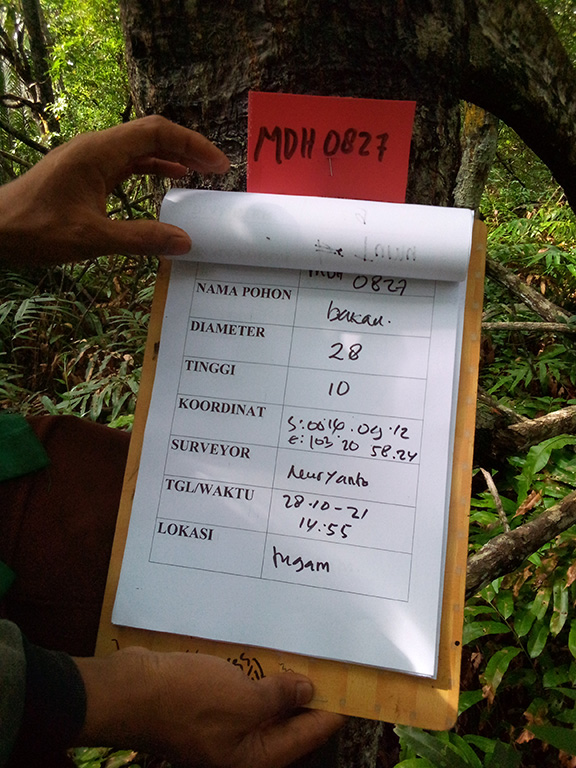 MDH 0827
0827
NAMA POHON bakau.
DIAMETER 28
TINGGI 10
KOORDINAT S:00 16.09.12
e:103 20 58.24
SURVEYOR Nuryanto
TGL/WAKTU 28-10-21
14.55
LOKASI tugam